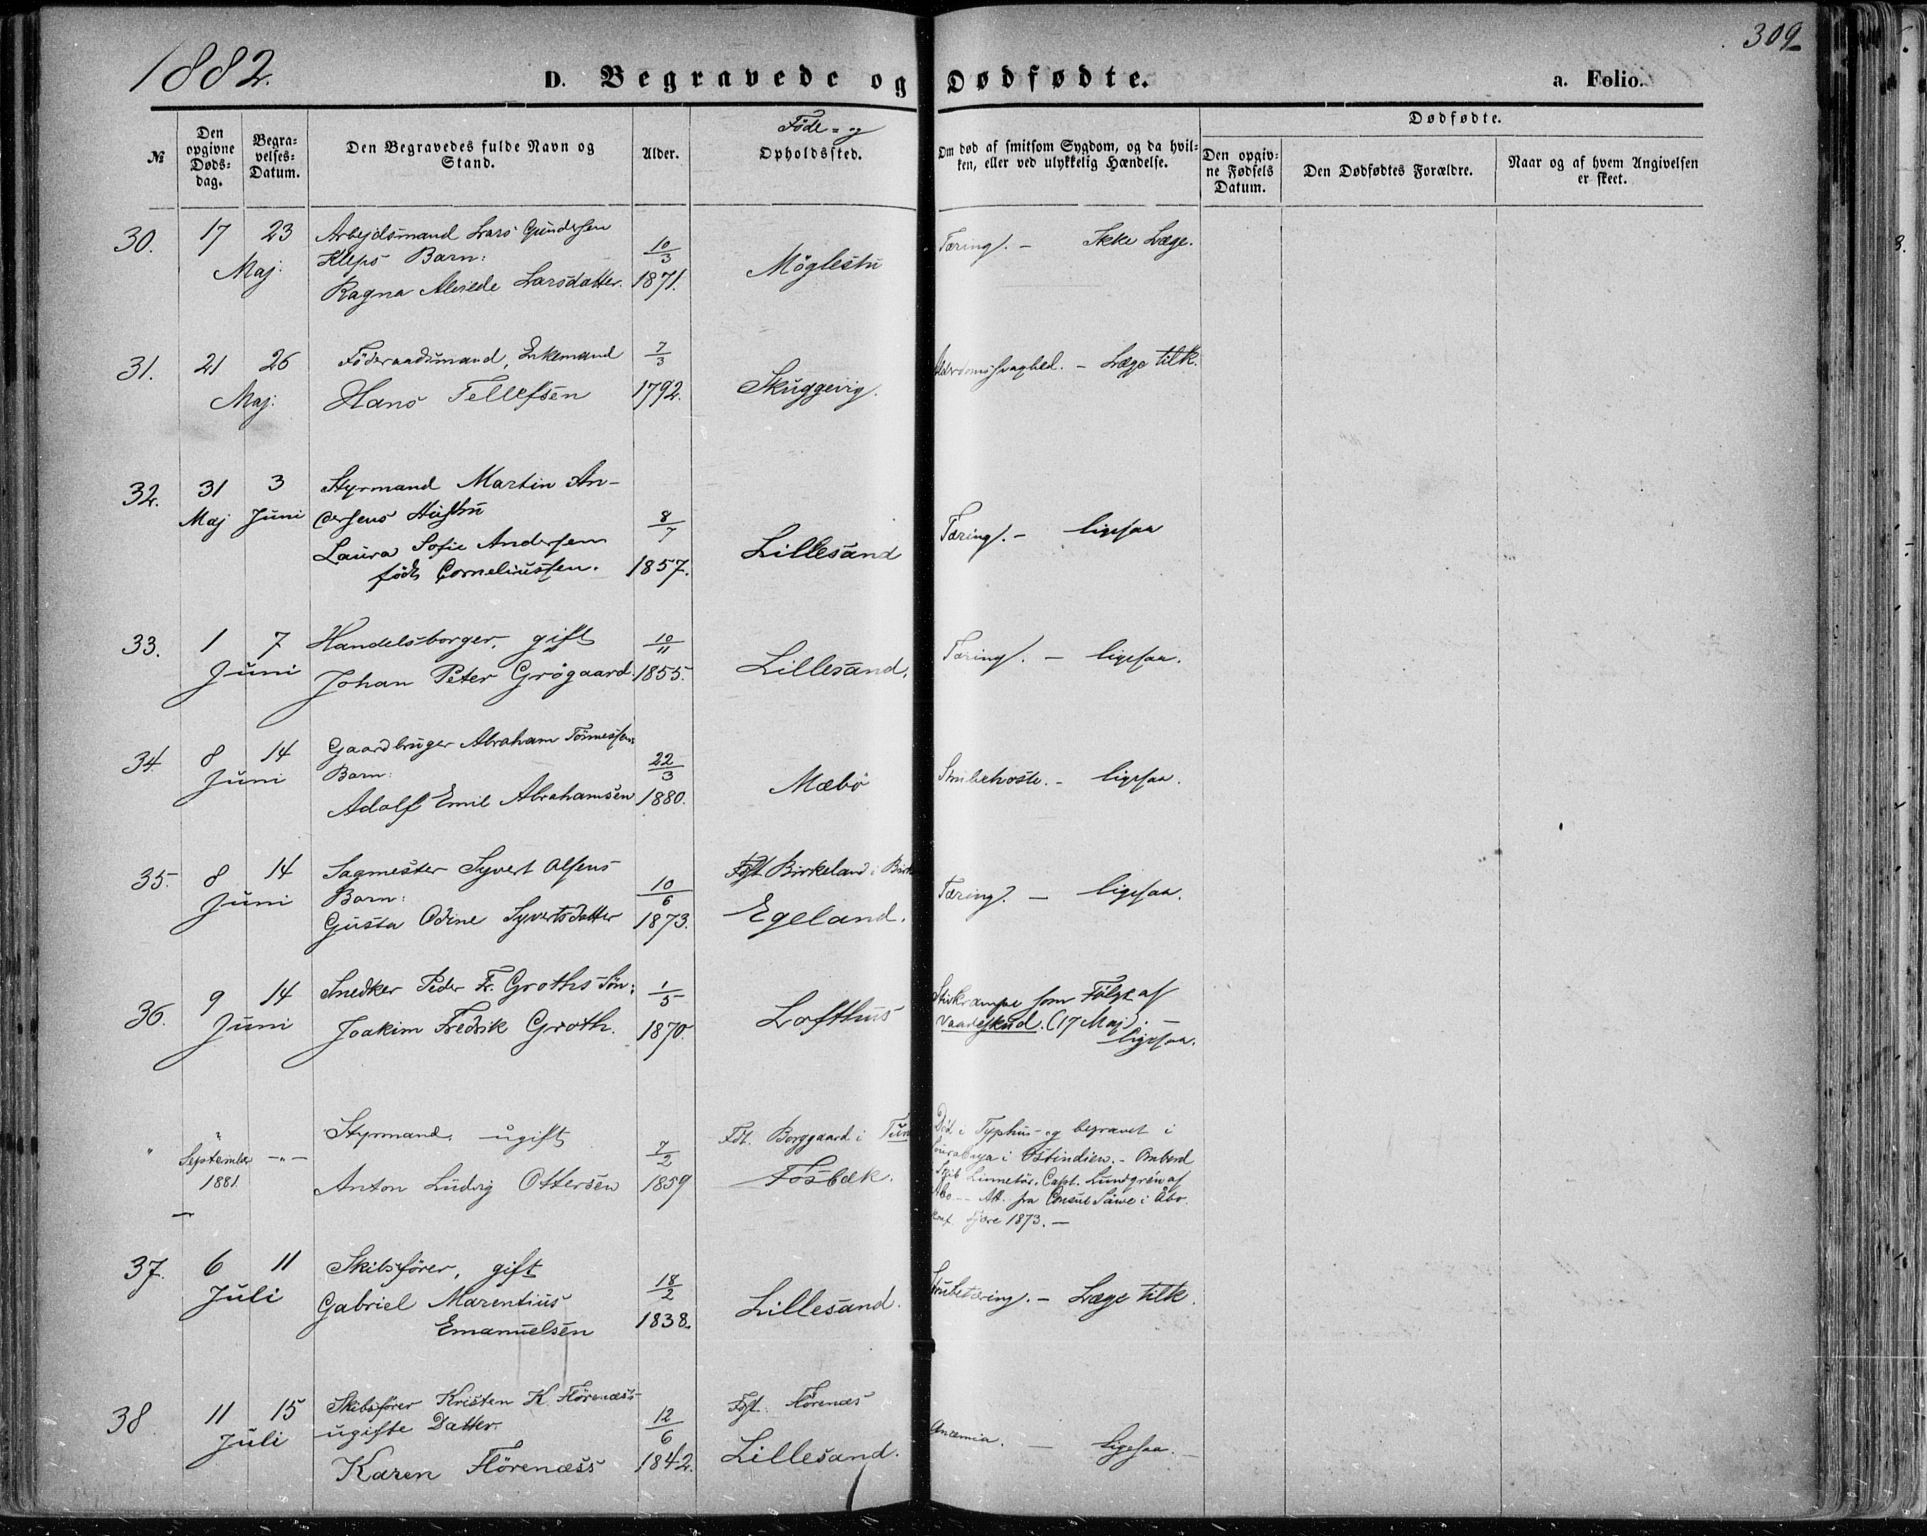 1882.
309
D. Begravede og Dødfødte.
a. Folio.
№
Den opgivne Døds-dag.
Begra-velses-Datum.
Den Begravedes fulde Navn og Stand.
Alder.
Føde- og
Opholdssted.
Om død af smitsom Sygdom, og da hvil-
ken, eller ved ulykkelig Hændelse.
Dødfødte.
Den opgiv-
ne Fødsels
Datum.
Den Dødfødtes Forældre.
Naar og af hvem Angivelsen
er skeet.
30. 17 23 Arbejdsmand Lars Gundersen
Maj. Kleps Barn: 10/3 Møglestu Tæring. – Ikke Læge.
Ragna Larsdatter. 1871.
31. 21 26 Føderaadsmand, Enkemand 7/3
Maj. Hans Tellefsen 1792. Skuggevig. Alderdomssvaghed. – Læge tilk.
32. 31 3 Styrmand Martin An-
Maj Juni dersens Hustru 8/7
Laura Sofie Andersen Lillesand Tæring. – ligesaa
født Corneliussen. 1857.
33. 1 7 Handelsborger, gift 10/11
Juni Johan Peter Grøgaard. 1855. Lillesand. Tæring. – ligesaa.
34. 8 14 Gaardbruger Abraham Tønnessens
Juni Barn: 22/3 Mæbø – ligesaa.
Adolf Emil Abrahamsen 1880.
35. 8 14 Sagmester Syvert Olsens Født Birkeland i
Juni Barn: 10/6 Tæring. – ligesaa.
Gusta Odine Syvertsdatter 1873. Egeland.
36. 9 14 Snedker Peder Fr. Groths Søn: 1/5
Juni Joakim Fredrik Groth. 1870. Lofthus
Stivkrampe som Følge af
Vaadeskud. (17 Maj). –
ligesaa.
" September –"– Styrmand, ugift 7/2 Fdt. Borggaard i
1881. Anton Ludvig Ottersen 1859 Fosbæk.
Død i Typhus – og begravet i
Sourabaya i Ostindien. – Ombord
Skib Linnetør, Capt. Lundgrén af
Åbo. – Att. fra Consul i Åbo.
Konf. Fjære 1873. –
37. 6 11 Skibsfører, gift 18/2
Juli Gabriel Marentius Lillesand. Strubetæring. – Læge tilk.
Emanuelsen 1838.
38 11 15 Skibsfører Kristen K. Flørenæss Født. Flørenæs
Juli ugifte Datter. 12/6 Anæmia. – Ligesaa. –
Karen Flørenæss 1842. Lillesand.